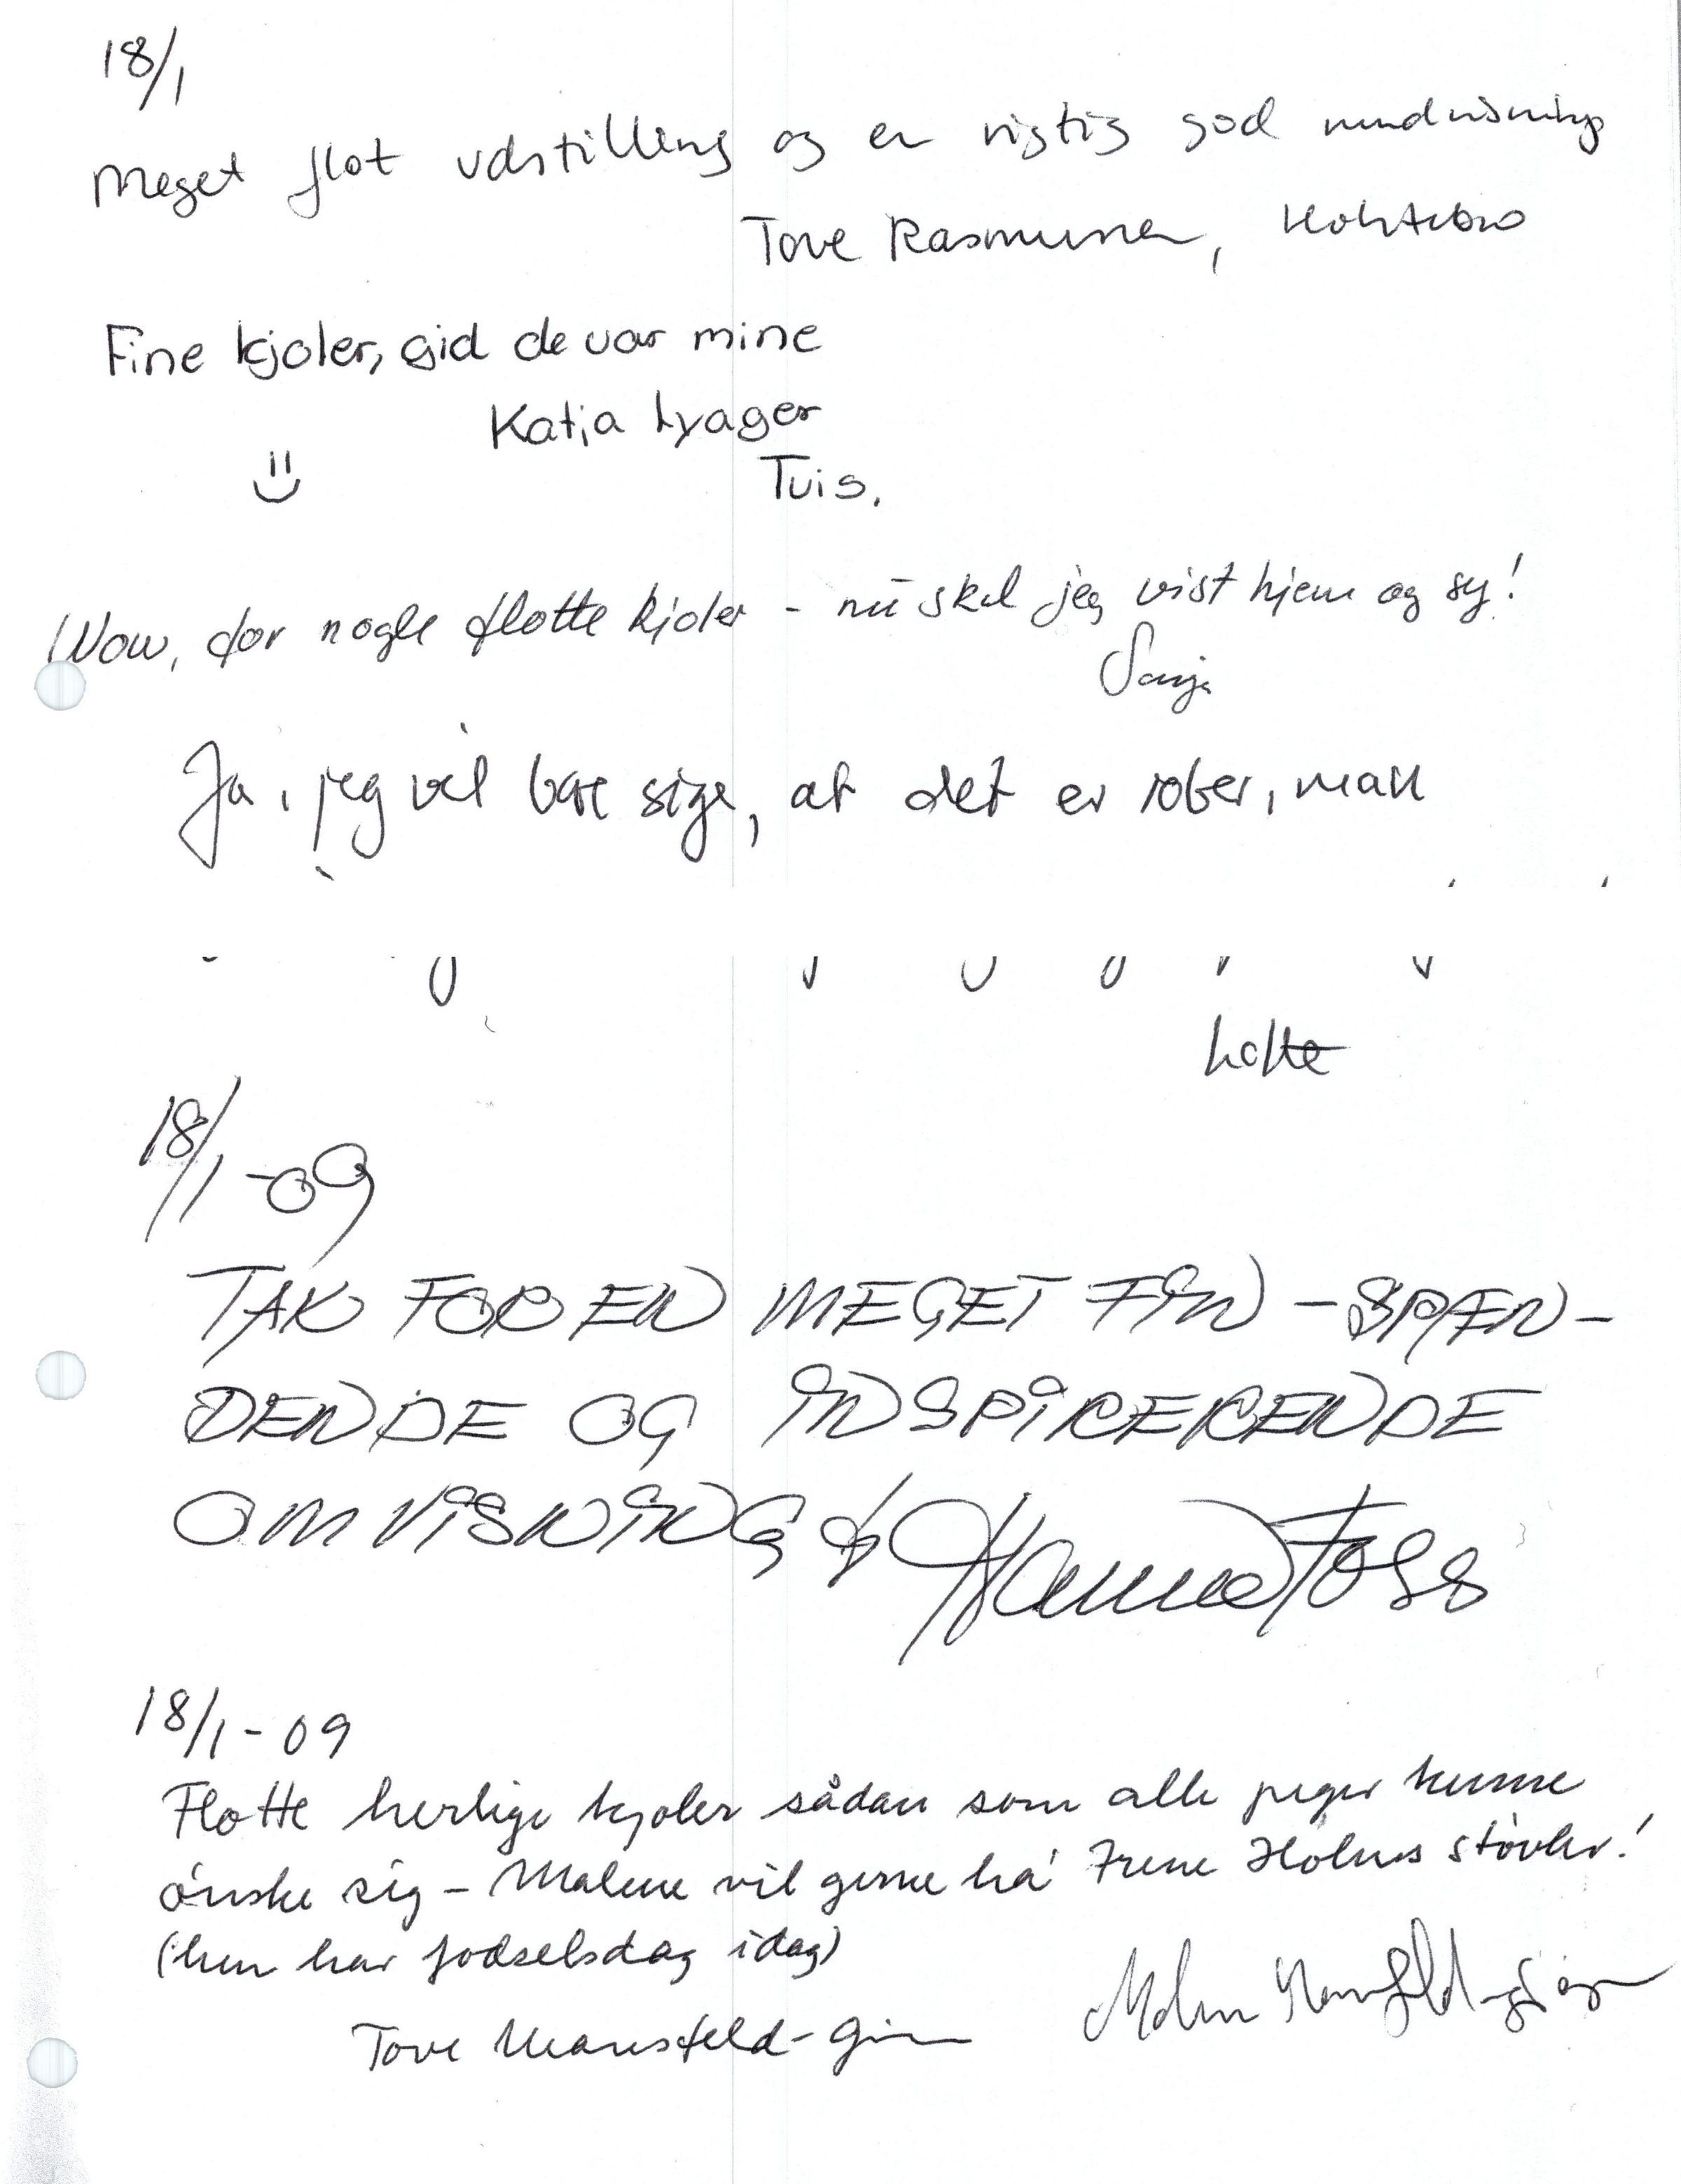 18/1
Meget flot udstilling og en rigtig god rundvisning
Tove Rasmussen, Holstebro
Fine kjoler, gid de var mine
Katja Lyager
Tvis.
Wow, for nogle flotte kjoler - nu skal jeg vist hjem og sy!
Sanja
Ja, jeg vil bare sige, at det er rober, man
Lotte
18/1-09
TAK FOR EN MEGET FIN - SPÆN-
DENDE OG INDSPIRERENDE
OMVISNING
Hanne Foss
18/1-09
Flotte herlige kjoler sådan som alle piger kunne
ønske sig - Malene vil gerne ha' Irene Holms støvler!
(hun har fødselsdag idag)
Tove Mansfeld-